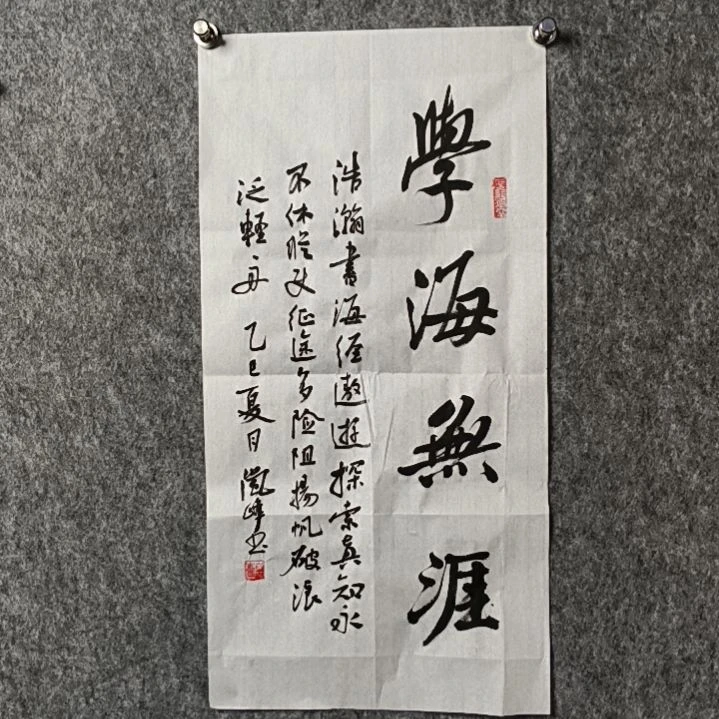 學海無涯
浩瀚書海任遨遊探索真知永
不休縱使征途多险阻揚帆破浪
泛輕舟 乙巳夏月嵐峰书